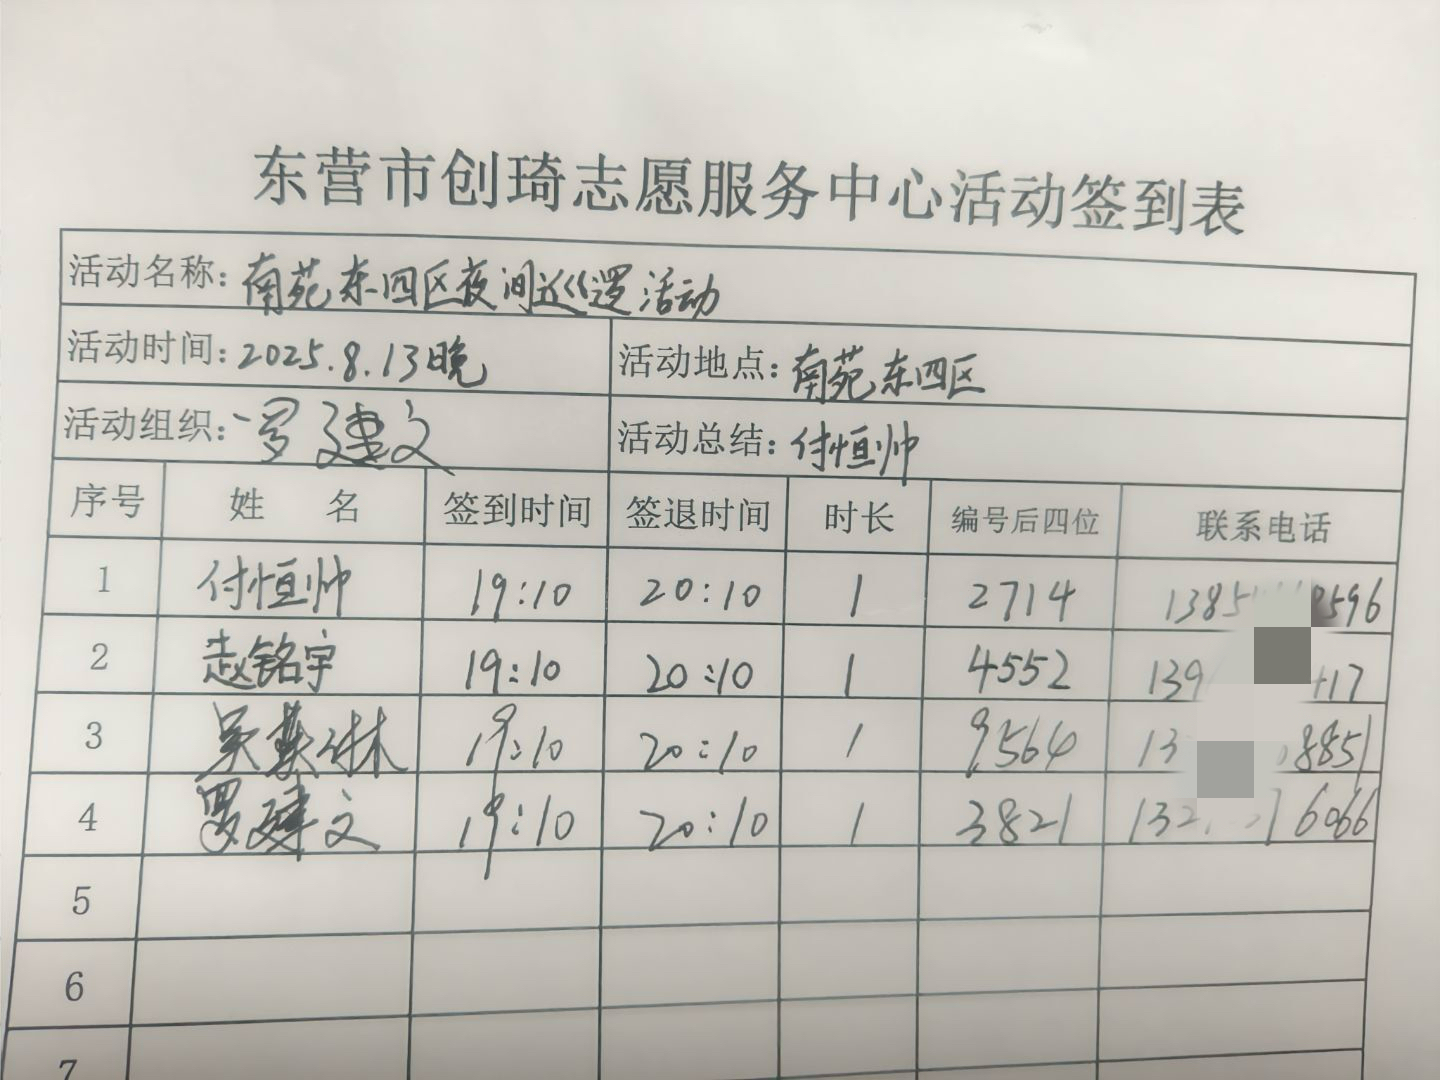 东营市创琦志愿服务中心活动签到表
活动名称：南苑东四区夜间巡逻活动
活动时间：2025.8.13晚 活动地点：南苑东四区
活动组织：罗建文 活动总结：付恒帅
序号 姓 名 签到时间 签退时间 时长 编号后四位 联系电话
1 付恒帅 19:10 20:10 1 2714 1385 8596
2 赵铭宇 19:10 20:10 1 4552 139 17
3 吴 林 19:10 20:10 1 9564 13 8851
4 罗建文 19:10 20:10 1 3821 132 6066
5
6
7